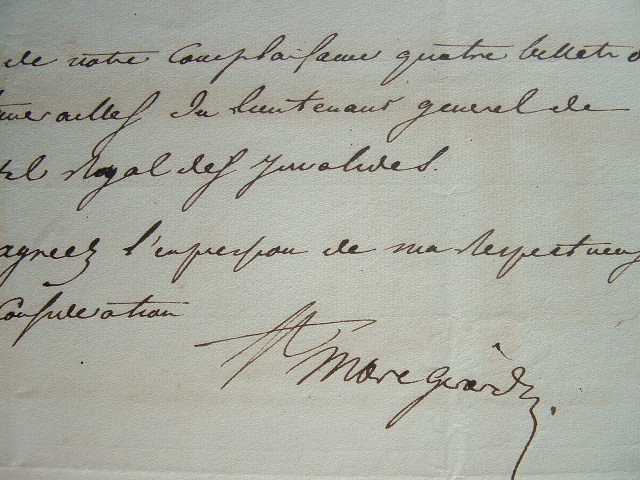 de notre Complaisance quatre billets d
unerailles du lieutenant general de
el Royal des Invalides.
agréez l'expression de ma Respectueus
Consideration
St Marc Girardin